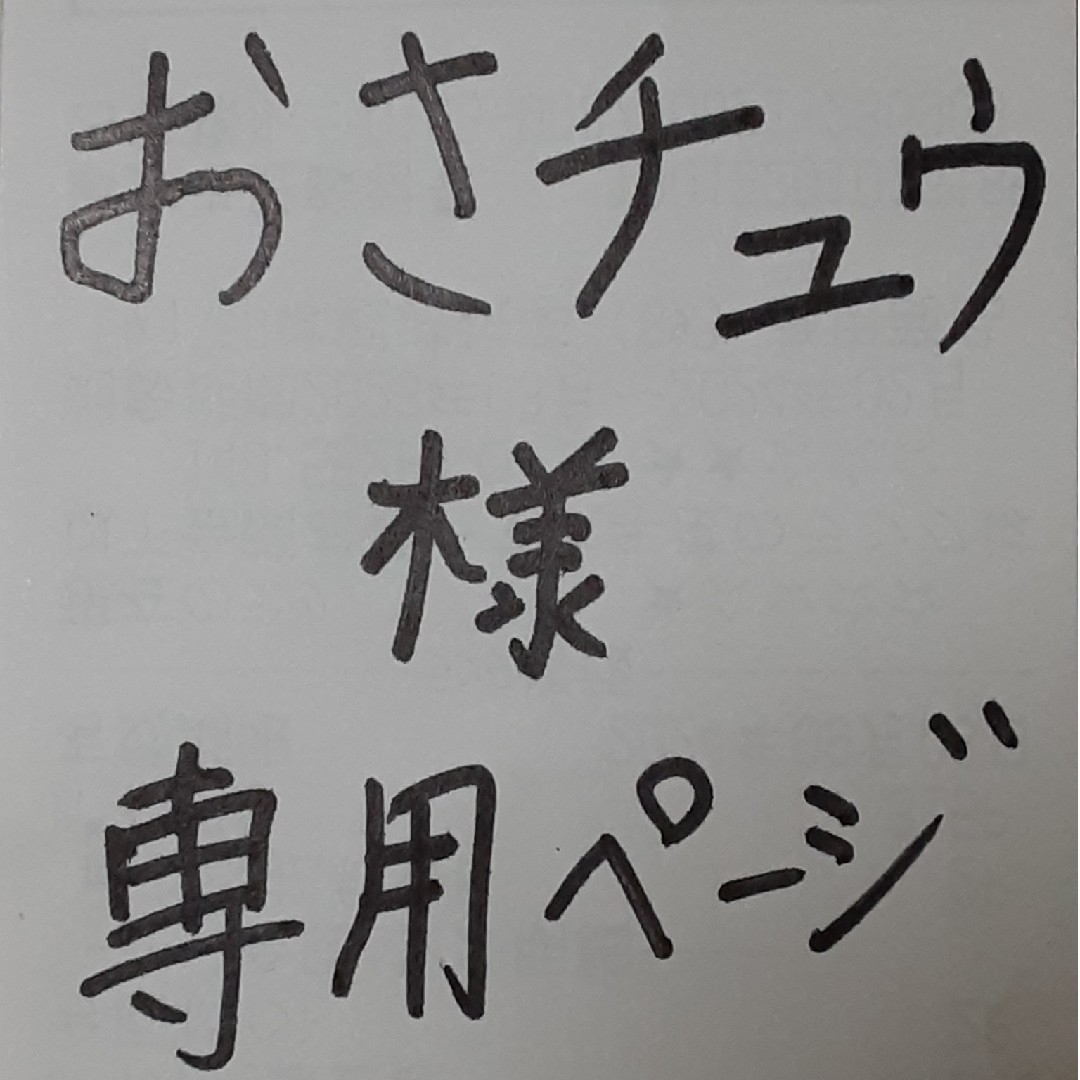 おさチュウ
様
専用ページ